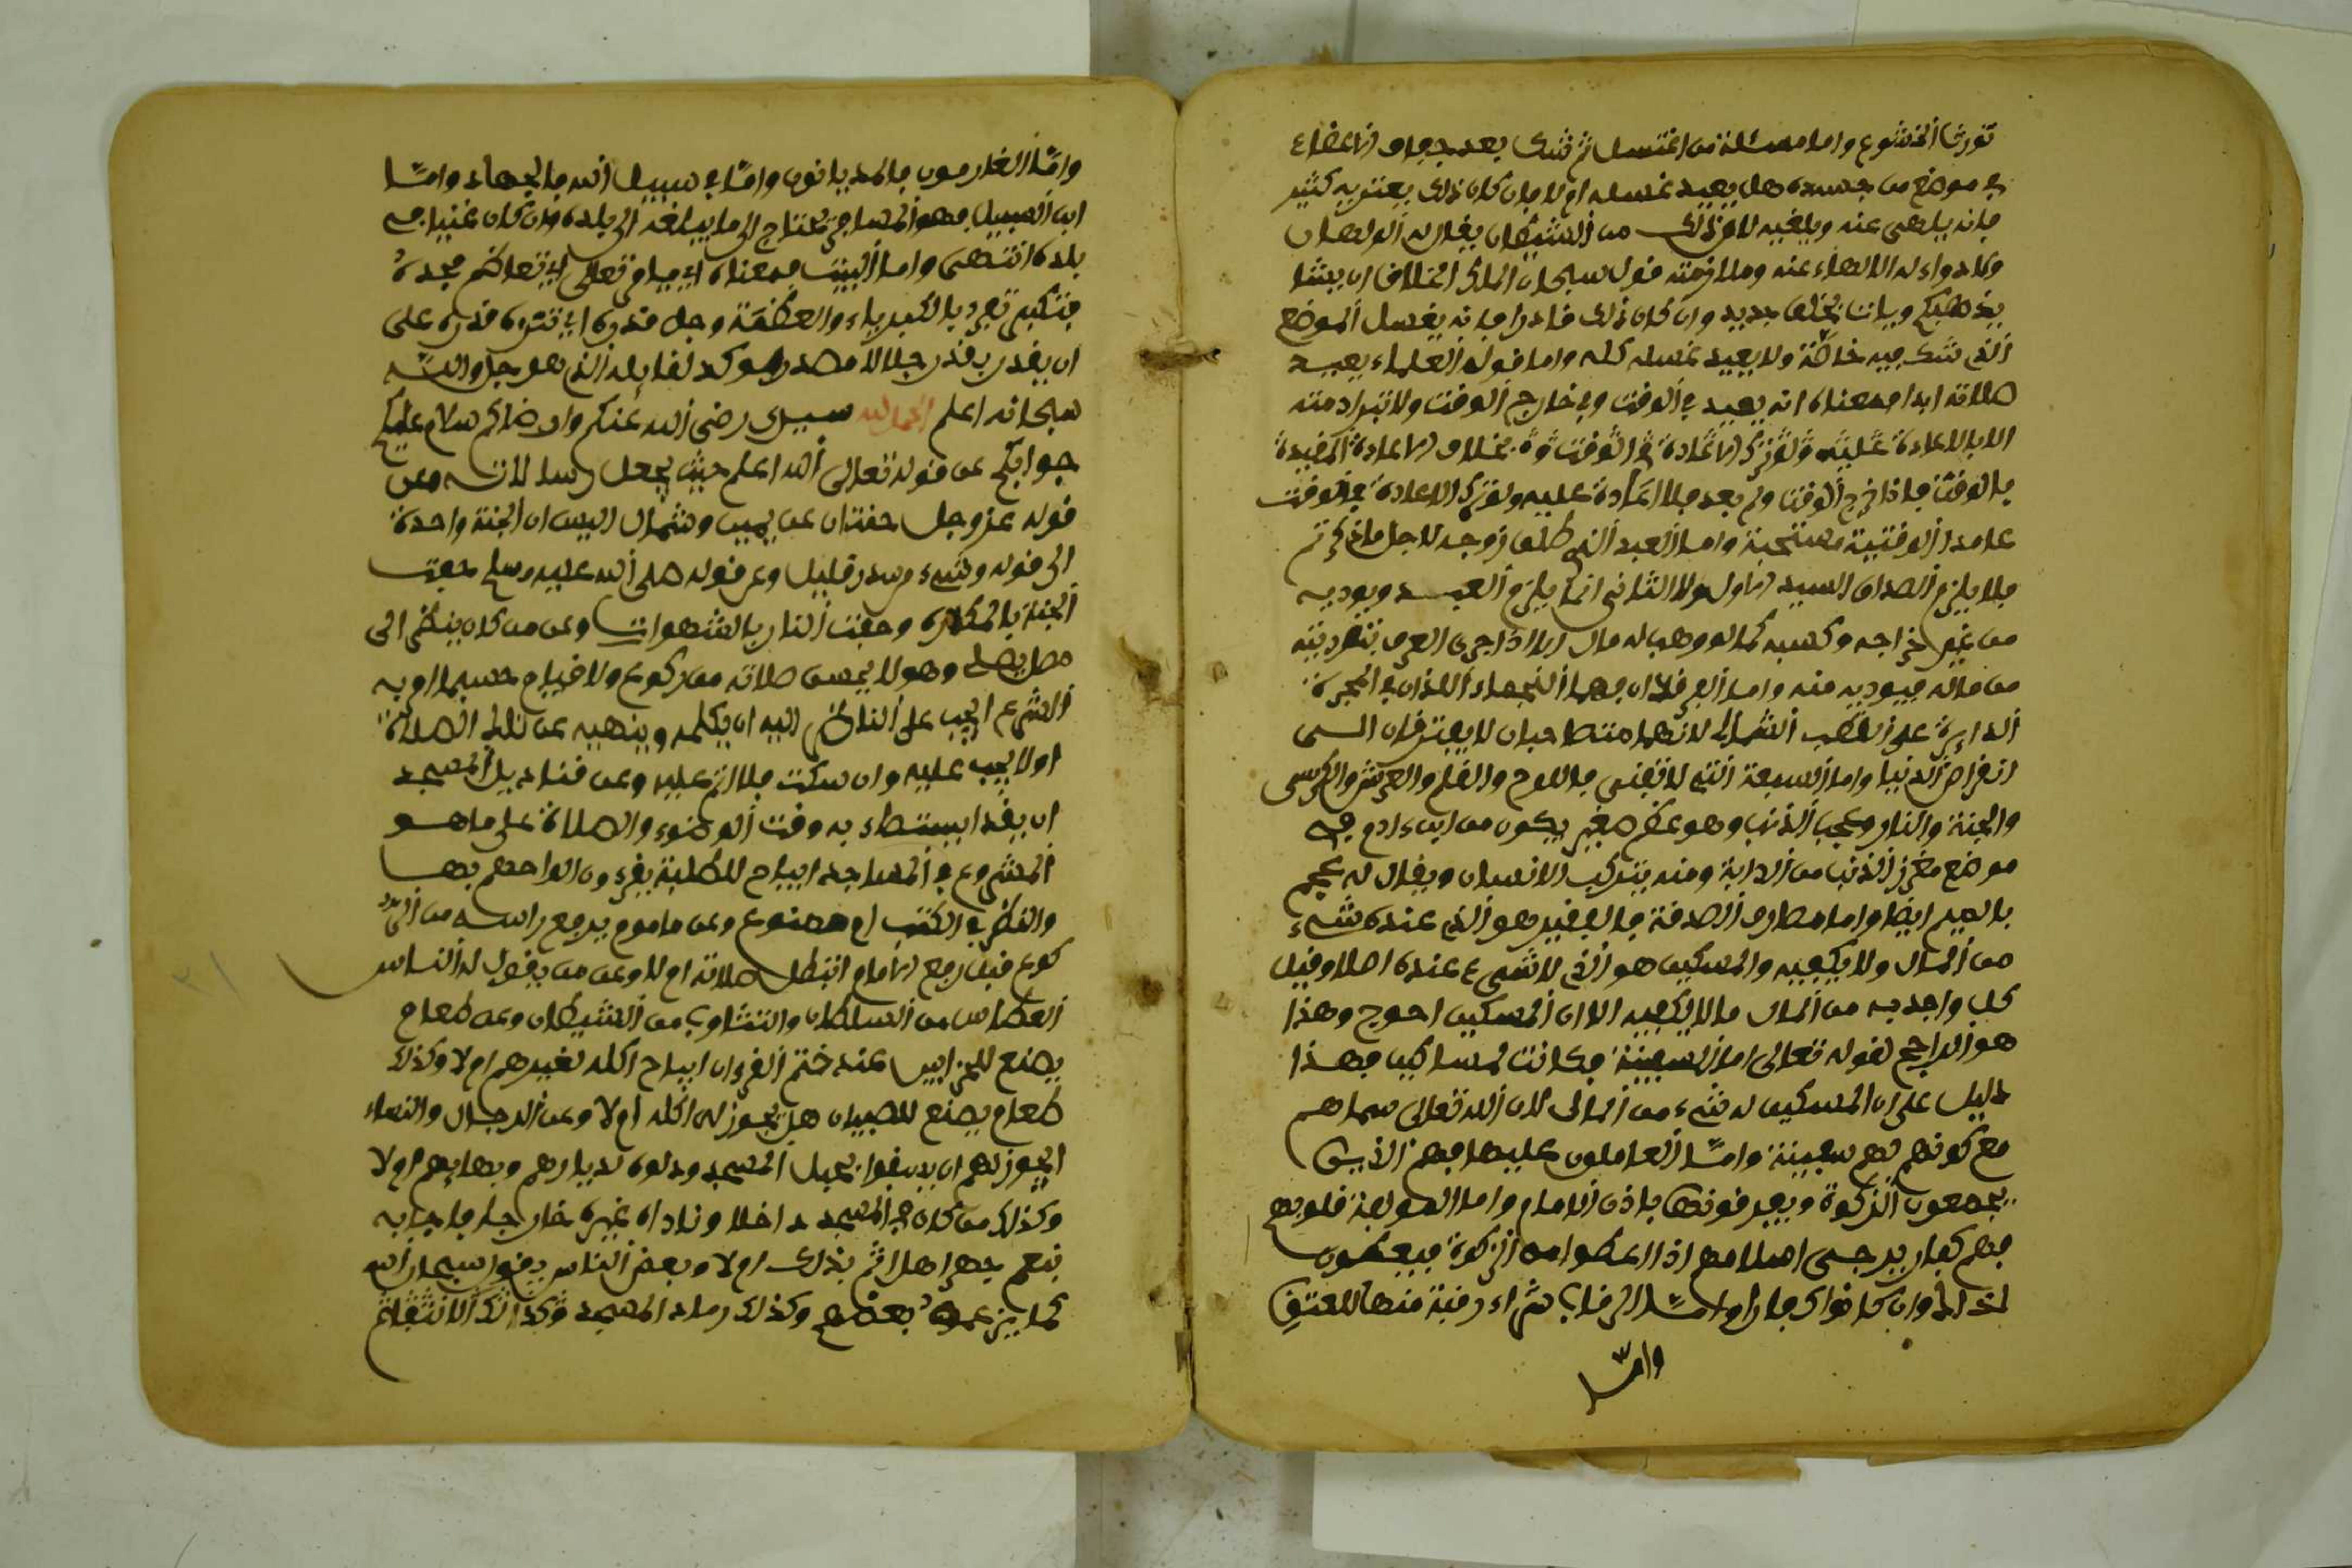 تورث الخشوع واما مسئلة من اغتسل ثم شك بعد جفاف الاعضاء
في موضع من جسده هل يعيد غسله ام لا فان كان ذلك يعتريه كثير
فانه يلهى عنه ويلغيه لان ذلك من الشيطان يقال له الولهان
ولا دواء له الا الالهاء عنه وملازمة قول سبحان الملك الخلاق ان يشا
يذهبكم ويات بخلق جديد وان كان ذلك نادرا فانه يغسل الموضع
الذي شك فيه خاصة ولا يعيد غسله كله واما قول العلماء يعيد
صلاته ابدا فمعناه انه يعيد في الوقت وفي خارج الوقت ولا تبرا ذمته
الا بالاعادة عليه ولو ترك الاعادة في الوقت بخلاف الاعادة المقيدة
بالوقت فاذا خرج الوقت ولم يعد فلا اعادة عليه ولو ترك الاعادة في الوقت
عامدا الوقتية مستحبة واما العبد الذي طلق زوجه لاجل ما ذكرتم
فلا يلزم الصداق السيد الاول ولا الثاني انما يلزم العبد ويوديه
من غير خراجه وكسبه كما لو وهب له مال الا اذا جرى العرف
من ماله فيوديه منه واما الفرقدان فهما النجمان اللذان في المجرة
الدايرة على القطب الشمالي لانهما متصاحبان لا يفترقان الى
انقراض الدنيا واما السبعة التي لا تفنى فاللوح والقلم والعرش والكرسي
والجنة والنار وعجب الذنب وهو عظم صغير يكون من ابن ءادم في
موضع مغرز الذنب من الدابة ومنه يتركب الانسان ويقال له عجم
بالميم ايضا واما مصارف الصدقة فالفقير هو الذي عنده شيء
من المال ولا يكفيه والمسكين هو الذي لا شيء عنده اصلا وقيل
كل واحد به من المال ما لا يكفيه الا ان المسكين احوج وهذا
هو الراجح لقوله تعالى اما السفينة فكانت لمساكين فهذا
دليل على ان المسكين له شيء من المال لان الله تعالى سماهم
مع كونهم لهم سفينة وامّا العاملون عليها فهم الذين
يجمعون الزكوة ويفرقونها باذن الامام واما المولفة قلوبهم
فهم كفار يرجى اسلامهم اذا اعطوا من الزكوة فيعطون
لذالك وان كانوا كفارا وامّا الرقاب شراء رقبة منها للعتق
وامّا
وامّا الغارمون فالمديانون وامّا في سبيل الله فالجهاد وامّا
ابن السبيل فهو المسافر يحتاج الى ما يبلغه الى بلده وان كان غنيا في
بلده انتهى واما البيت فمعناه تعالى اي تعاظم مجده
متكبر تفرد بالكبرياء والعظمة وجل قدره اي تنزه قدره على
ان يقدر بقدر جلالا مصدر موكد لفا الذي هو جل والله
سبحانه اعلم الحمد لله سيدي رضي الله عنكم وارضاكم سلام عليكم
جوابكم عن قوله تعالى الله اعلم حيث يجعل رسالاته وعن
قوله عز وجل جنتان عن يمين وشمال اليس ان الجنة واحدة
الى قوله وشيء من سدر قليل وعن قوله صلى الله عليه وسلم حفت
الجنة بالمكاره وحفت النار بالشهوات وعن من كان ينظر الى
مصل يصلي وهو لا يحسن صلاته من ركوع ولا قيام حسبما اوبه
الشرع ايجب على الناظر اليه ان يكلمه وينهيه عن تلك الصلاة
او لا يجب عليه وان سكت فلا اثم عليه وعن قناديل المسجد
ان يقدا يستضاء به وقت الوضوء والصلاة على ما هو
المشروع في المساجد ايباح للطلبة يقرءون الواحهم بها
والنظر في الكتب ام ممنوع وعن ماموم يرفع راسه من الر
كوع قبل رفع الامام اتبطل صلاته ام لا وعن من يقول له الناس
العطاس من السلطان والتثاوب من الشيطان وعن طعام
يصنع للحزابين عند ختم القرءان ايباح اكله لغيرهم ام لا وكذلك
طعام يصنع للصبيان هل يجوز لي اكله ام لا وعن الرجال والنساء
ايجوز لهم ان يسقوا بحبل المسجد ودلوه لديارهم وبهايمهم ام لا
وكذلك من كان في المسجد داخلا وناداه غيره خارجا فاجابه
بنعم جهرا هل اثم بذلك ام لا وبعض الناس يقول سبحان الله
كما يزعمه بعضهم وكذلك رماد المسجد وكذالك الانتقاع